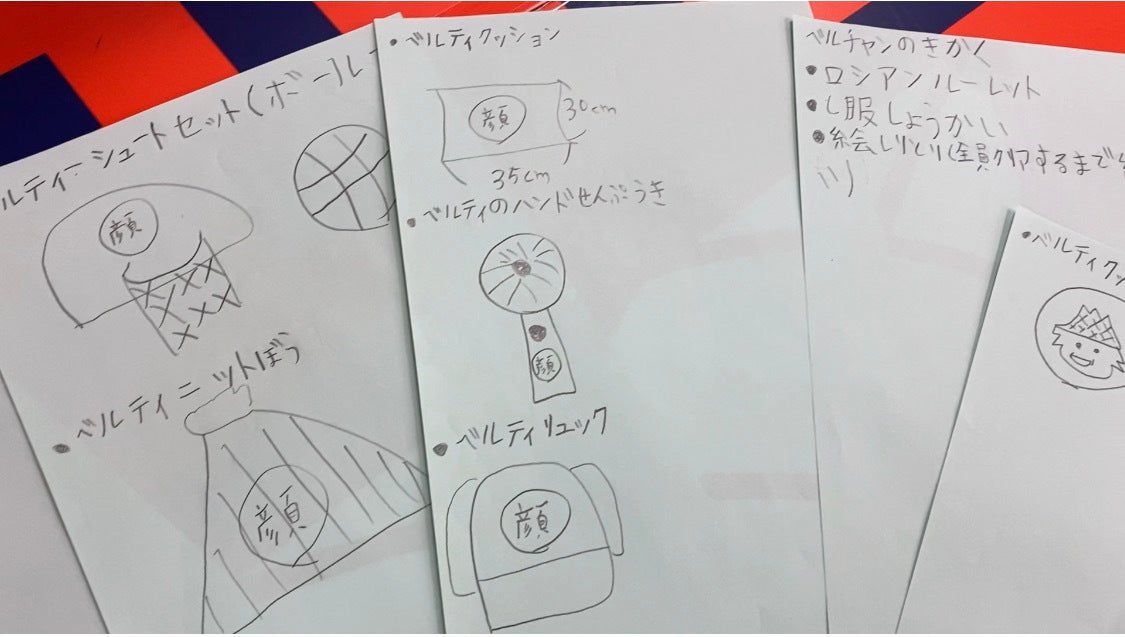 ルティー シュートセット(ボール
顔
・ベルティニットぼう
顔
・ベルティクッション
顔
30cm
35cm
・ベルティのハンドせんぷうき
顔
・ベルティリュック
顔
ベルチャンのきかく
・ロシアンルーレット
・し服しょうかい
・絵しりとり(全員クリアするまで
・ベルティクッ